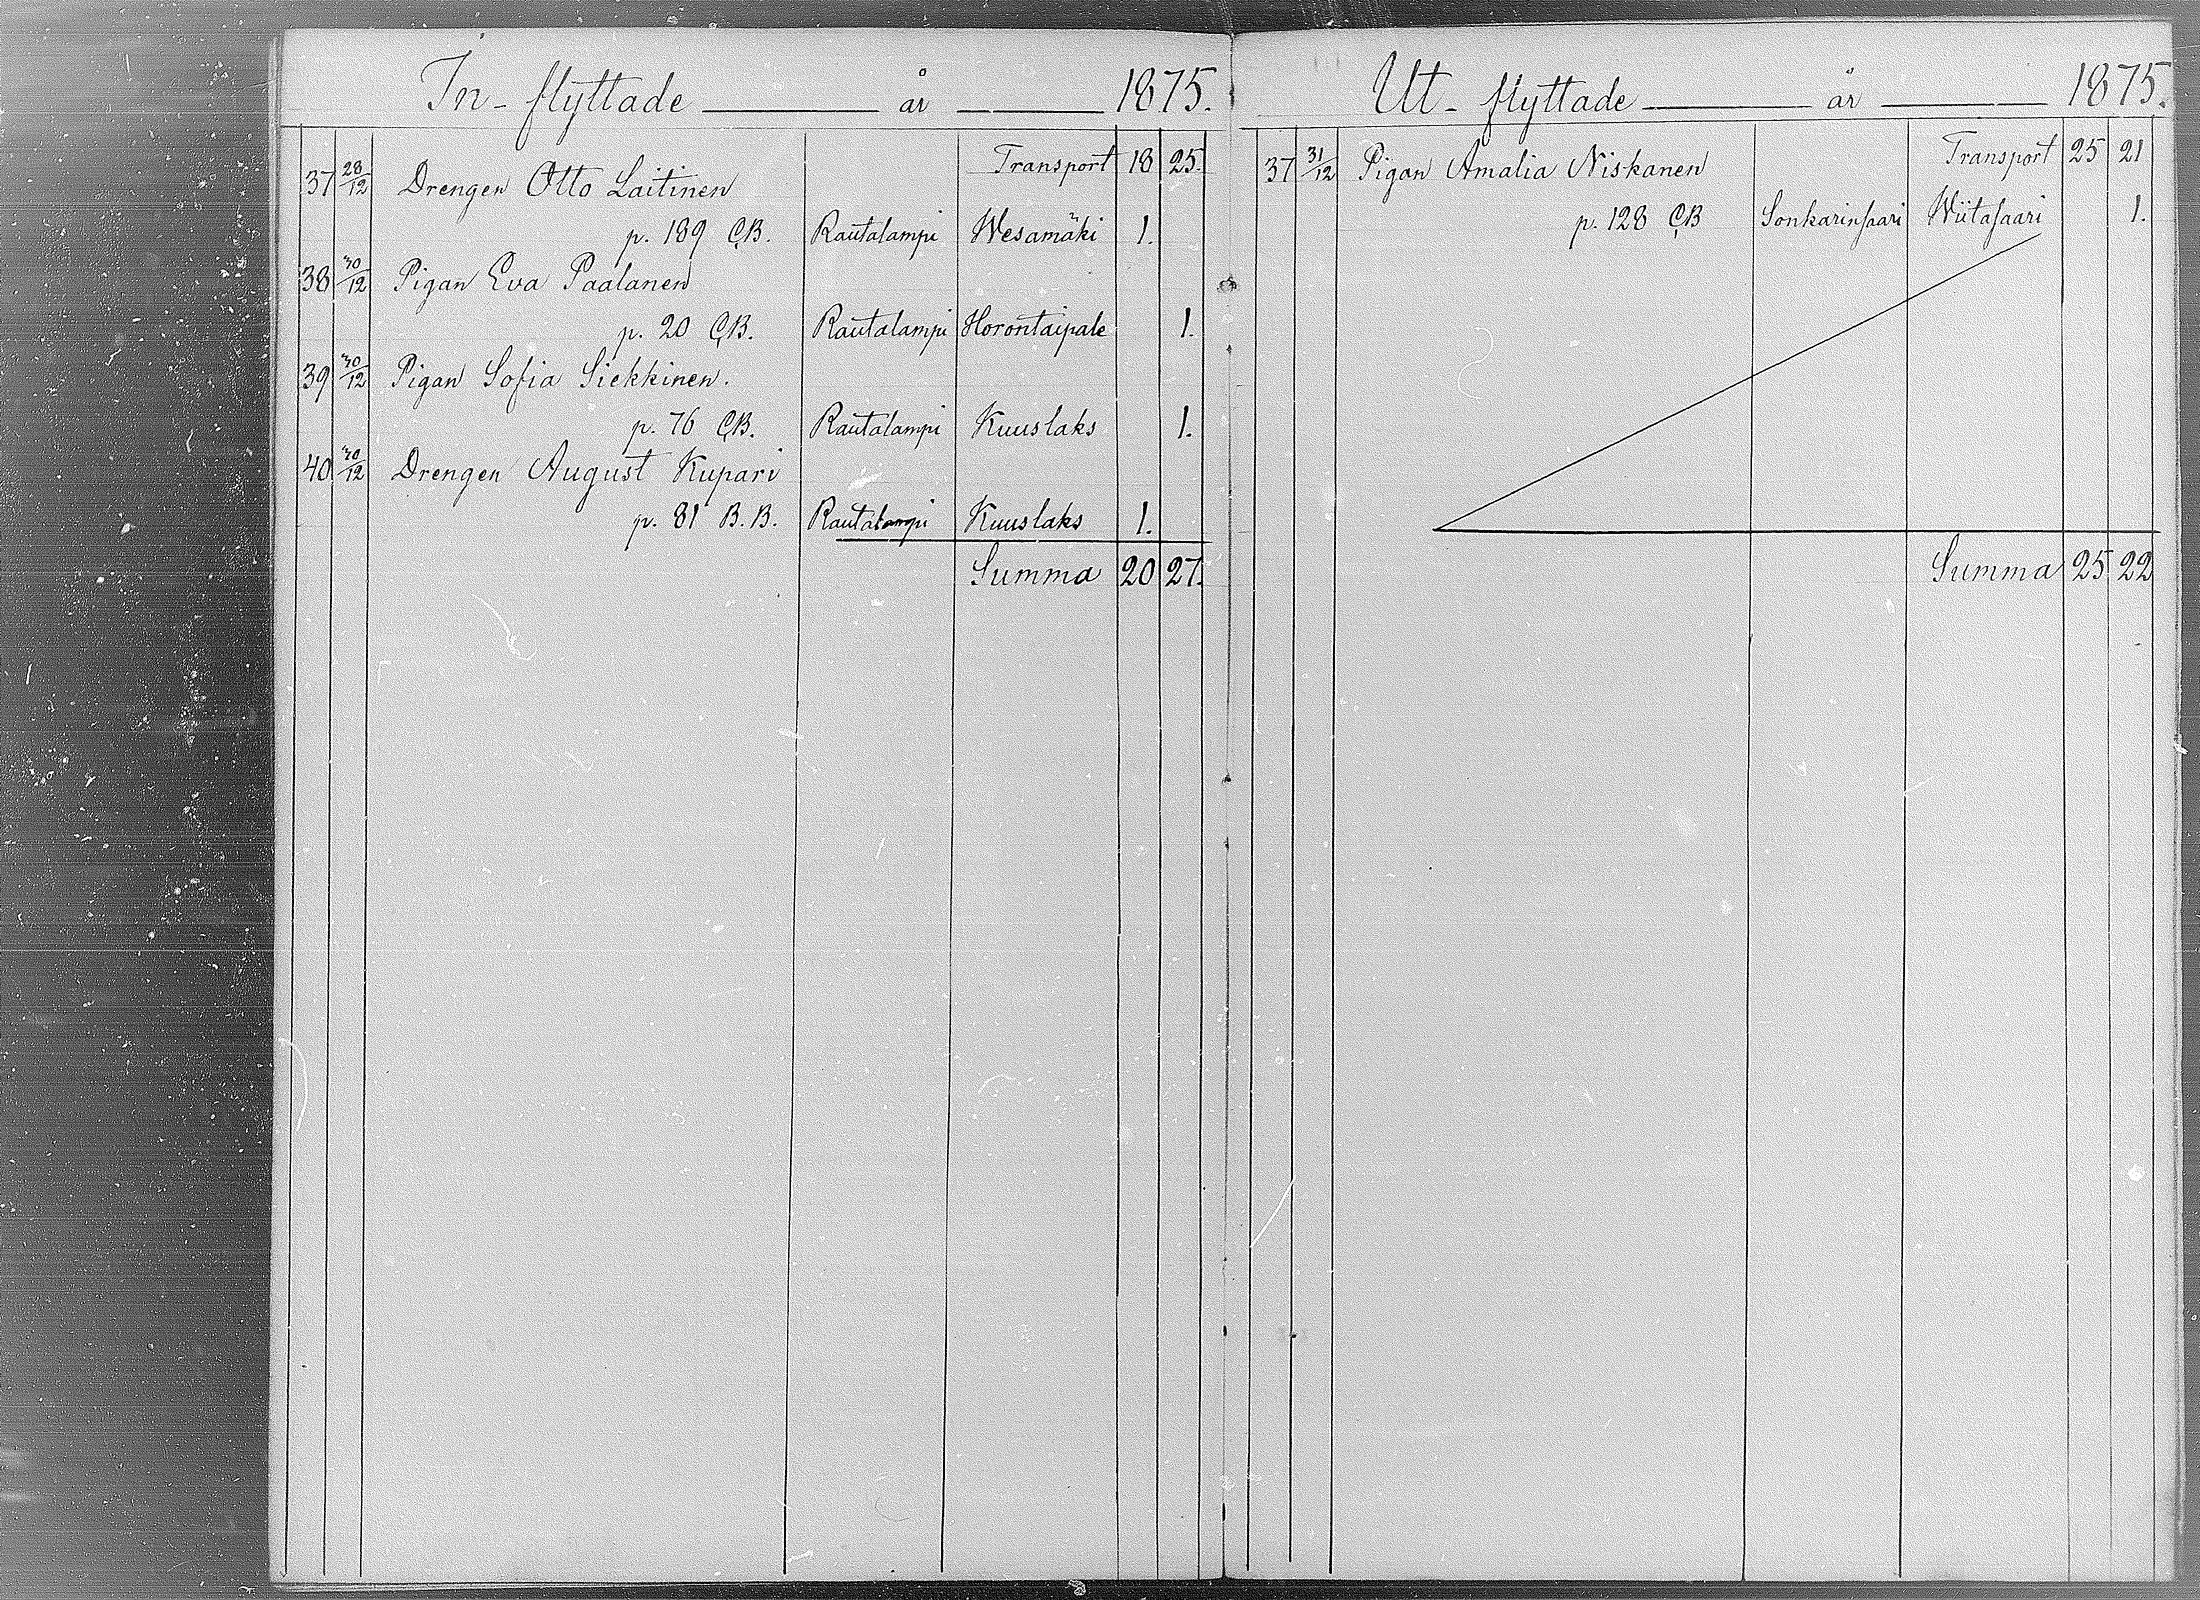 In-flyttade år 1875.
Transport 18 25.
37 28/12 Drengen Otto Laitinen
p. 189 C.B. Rautalampi Wesamäki 1.
38 30/12 Pigan Eva Paalanen
p. 20 C.B. Rautalampi Horontaipale 1.
39 30/12 Pigan Sofia Siekkinen.
p. 76 C.B. Rautalampi Kuuslaks 1.
40 30/12 Drengen August Kupari
p. 81 B.B. Rautalampi Kuuslaks 1.
Summa 20 27.
Ut-flyttade år 1875.
Transport 25 21
37 31/12 Pigan Amalia Niskanen
p. 128 C.B Sonkarinsaari Wiitasaari 1.
Summa 25 22